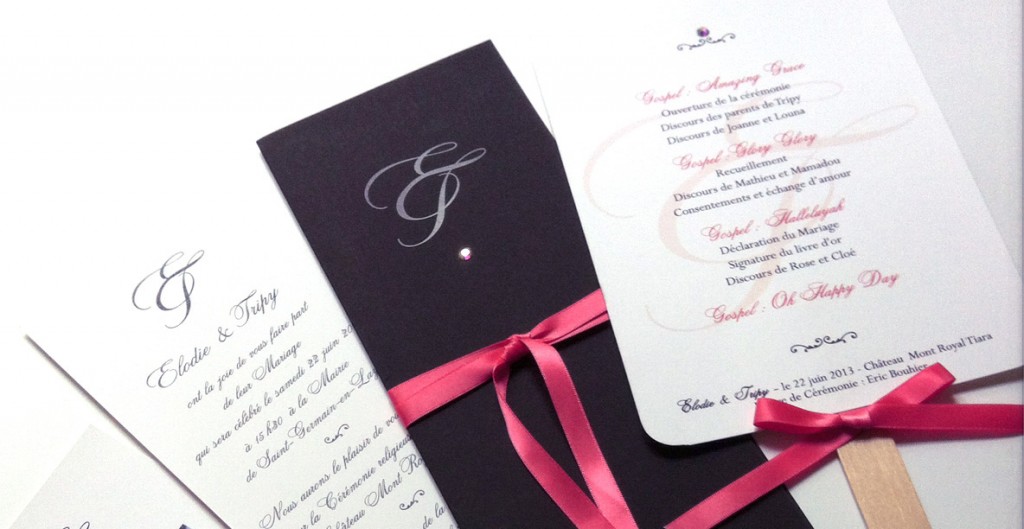 &
Elodie & Tripy
ont la joie de vous faire part
de leur Mariage
qui sera célébré le samedi 22 juin 20
à 15h30 à la Mairie
de Saint-Germain-en-La
Nous aurons le plaisir de vou
la Cérémonie religieus
Mont Ro
&
Gospel : Amazing Grace
Ouverture de la cérémonie
Discours des parents de Tripy
Discours de Joanne et Louna
Gospel : Glory Glory
Recueillement
Discours de Mathieu et Mamadou
Consentements et échange d'amour
Gospel : Halleluyah
Déclaration du Mariage
Signature du livre d'or
Discours de Rose et Cloé
Gospel : Oh Happy Day
Elodie & Tripy - le 22 juin 2013 - Château Mont Royal Tiara
de Cérémonie : Eric Bouhier